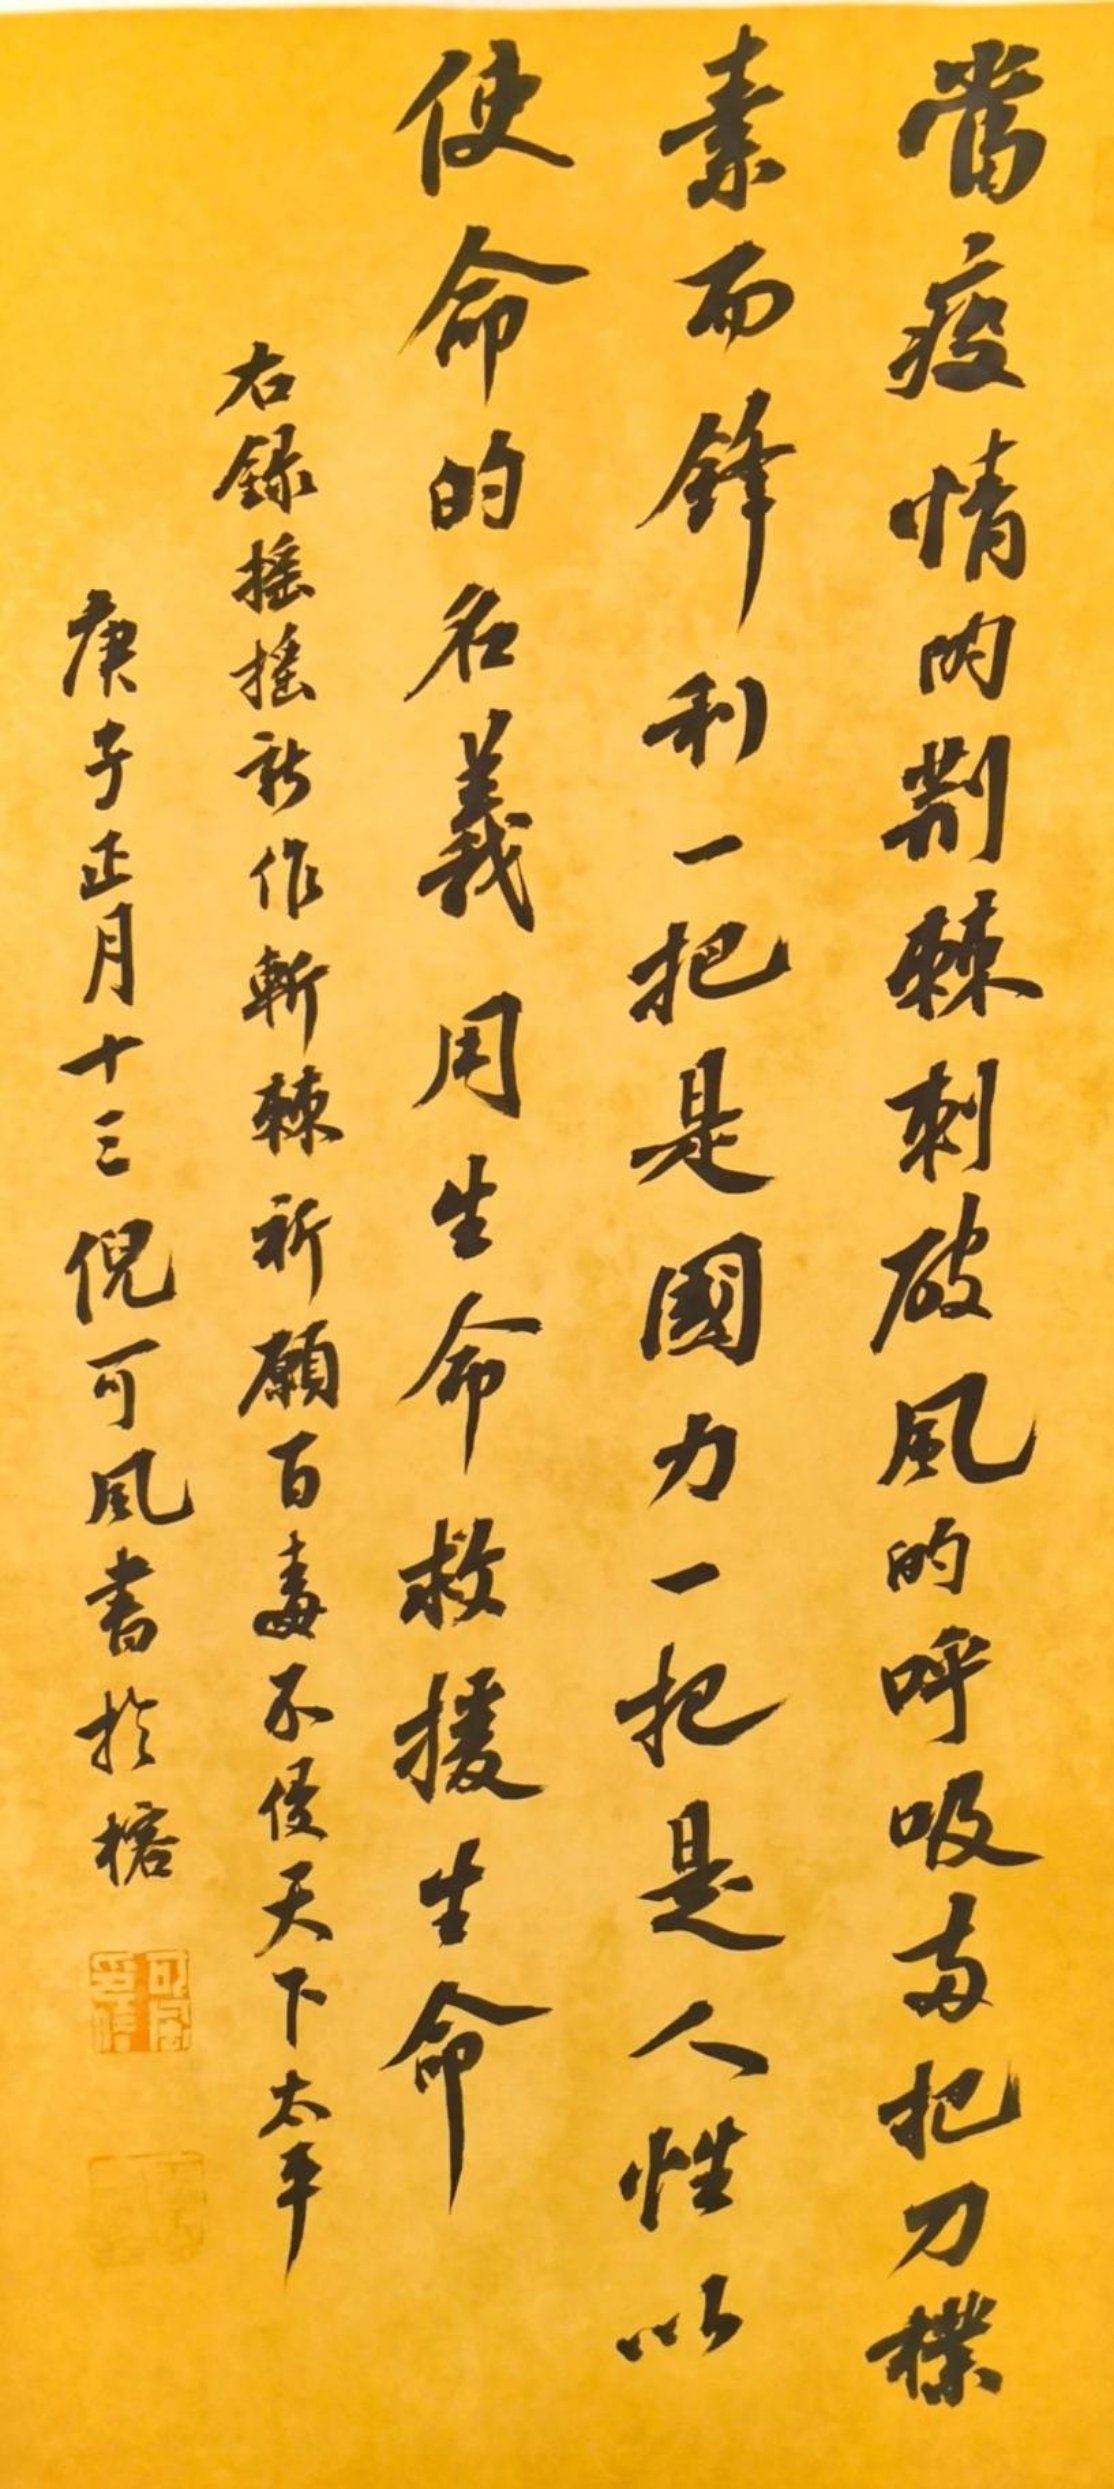 當疫情的荆棘刺破風的呼吸兩把刀樸
素而鋒利一把是國力一把是人性以
使命的名義用生命救援生命
右録摇摇新作斬棘祈願百毒不侵天下太平
庚子正月十三倪可風書於榕